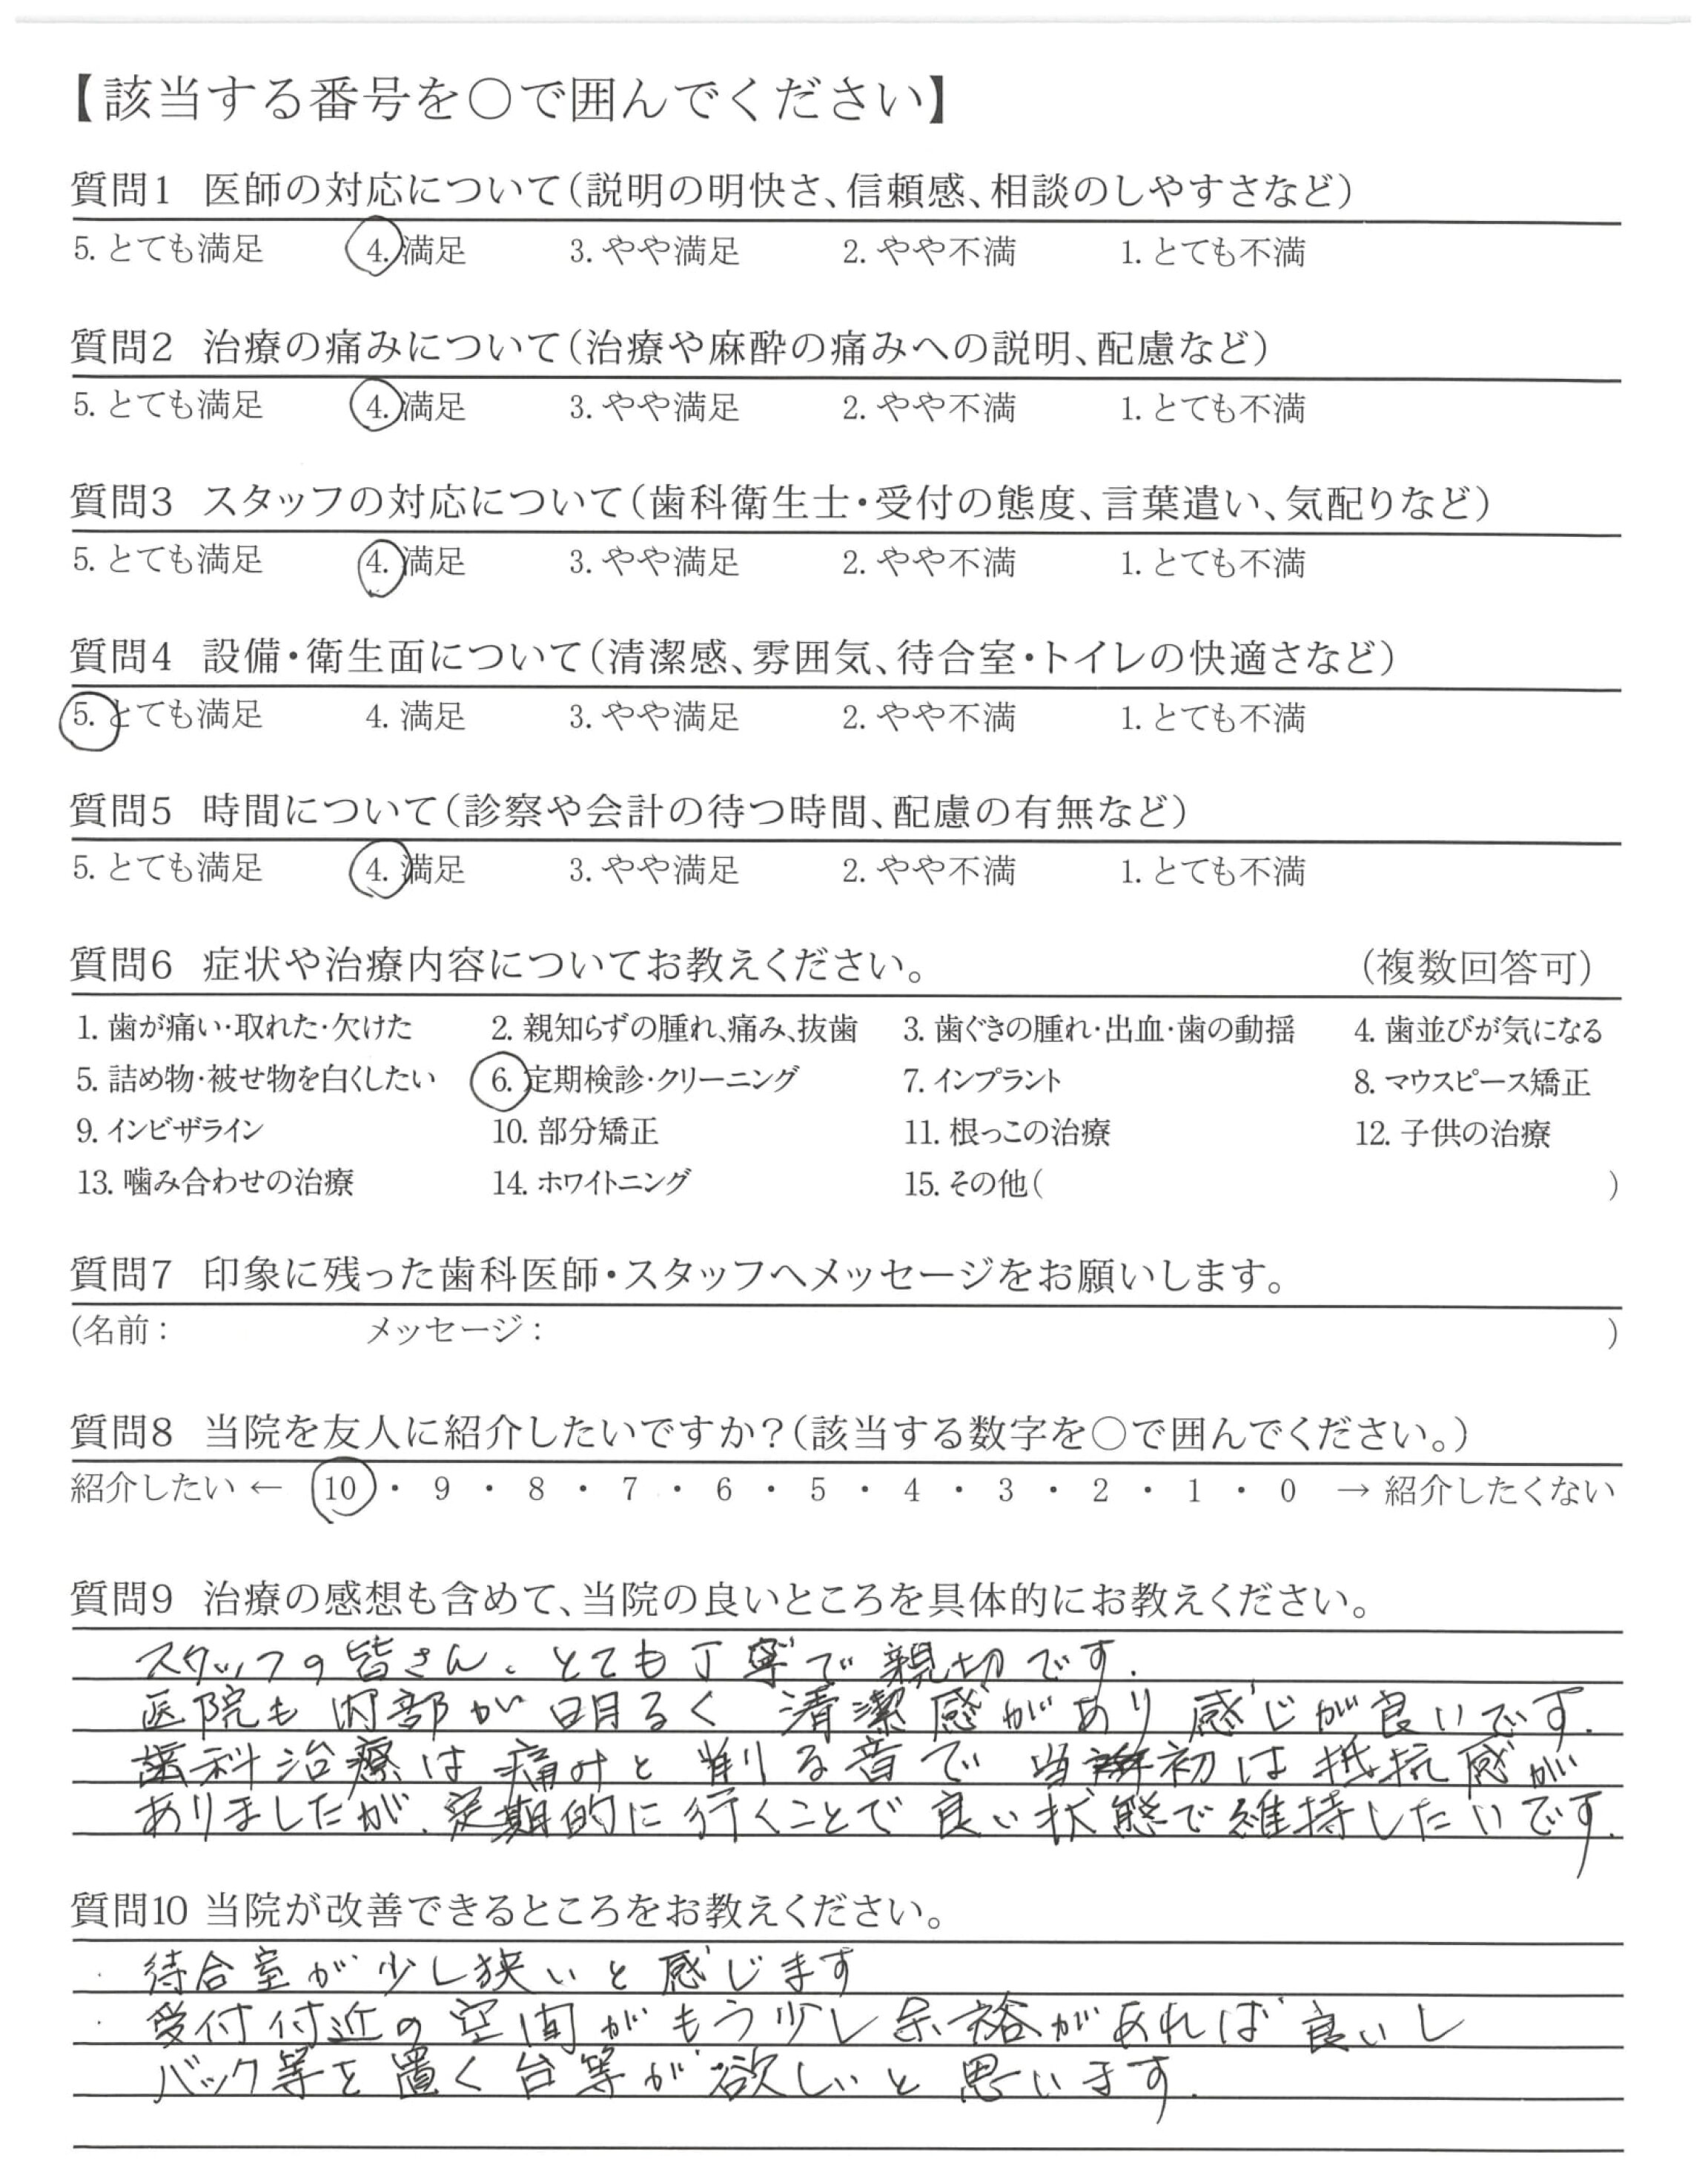 【該当する番号を○で囲んでください】
質問1 医師の対応について(説明の明快さ、信頼感、相談のしやすさなど)
5. とても満足 4. 満足 3. やや満足 2. やや不満 1. とても不満
質問2 治療の痛みについて(治療や麻酔の痛みへの説明、配慮など)
5. とても満足 4. 満足 3. やや満足 2. やや不満 1. とても不満
質問3 スタッフの対応について(歯科衛生士・受付の態度、言葉遣い、気配りなど)
5. とても満足 4. 満足 3. やや満足 2. やや不満 1. とても不満
質問4 設備・衛生面について(清潔感、雰囲気、待合室・トイレの快適さなど)
5. とても満足 4. 満足 3. やや満足 2. やや不満 1. とても不満
質問5 時間について(診察や会計の待つ時間、配慮の有無など)
5. とても満足 4. 満足 3. やや満足 2. やや不満 1. とても不満
質問6 症状や治療内容についてお教えください。 (複数回答可)
1. 歯が痛い・取れた・欠けた 2. 親知らずの腫れ、痛み、抜歯 3. 歯ぐきの腫れ・出血・歯の動揺 4. 歯並びが気になる
5. 詰め物・被せ物を白くしたい 6. 定期検診・クリーニング 7. インプラント 8. マウスピース矯正
9. インビザライン 10. 部分矯正 11. 根っこの治療 12. 子供の治療
13. 噛み合わせの治療 14. ホワイトニング 15. その他( )
質問7 印象に残った歯科医師・スタッフへメッセージをお願いします。
(名前: メッセージ: )
質問8 当院を友人に紹介したいですか?(該当する数字を○で囲んでください。)
紹介したい ← 10 ・ 9 ・ 8 ・ 7 ・ 6 ・ 5 ・ 4 ・ 3 ・ 2 ・ 1 ・ 0 → 紹介したくない
質問9 治療の感想も含めて、当院の良いところを具体的にお教えください。
スタッフの皆さん、とても丁寧で親切です.
医院も内部が明るく 清潔感があり 感じが良いです.
歯科治療は痛みと削る音で 当初は抵抗感が
ありましたが、定期的に行くことで良い状態で維持したいです.
質問10 当院が改善できるところをお教えください。
・待合室が少し狭いと感じます
・受付付近の空間がもう少し余裕があれば良いし
バック等を置く台等が欲しいと思います.